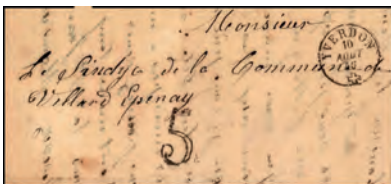 Monsieur
Le Sindya de la Commune de
Villard Epenay
YVERDON
10
AOUT
5